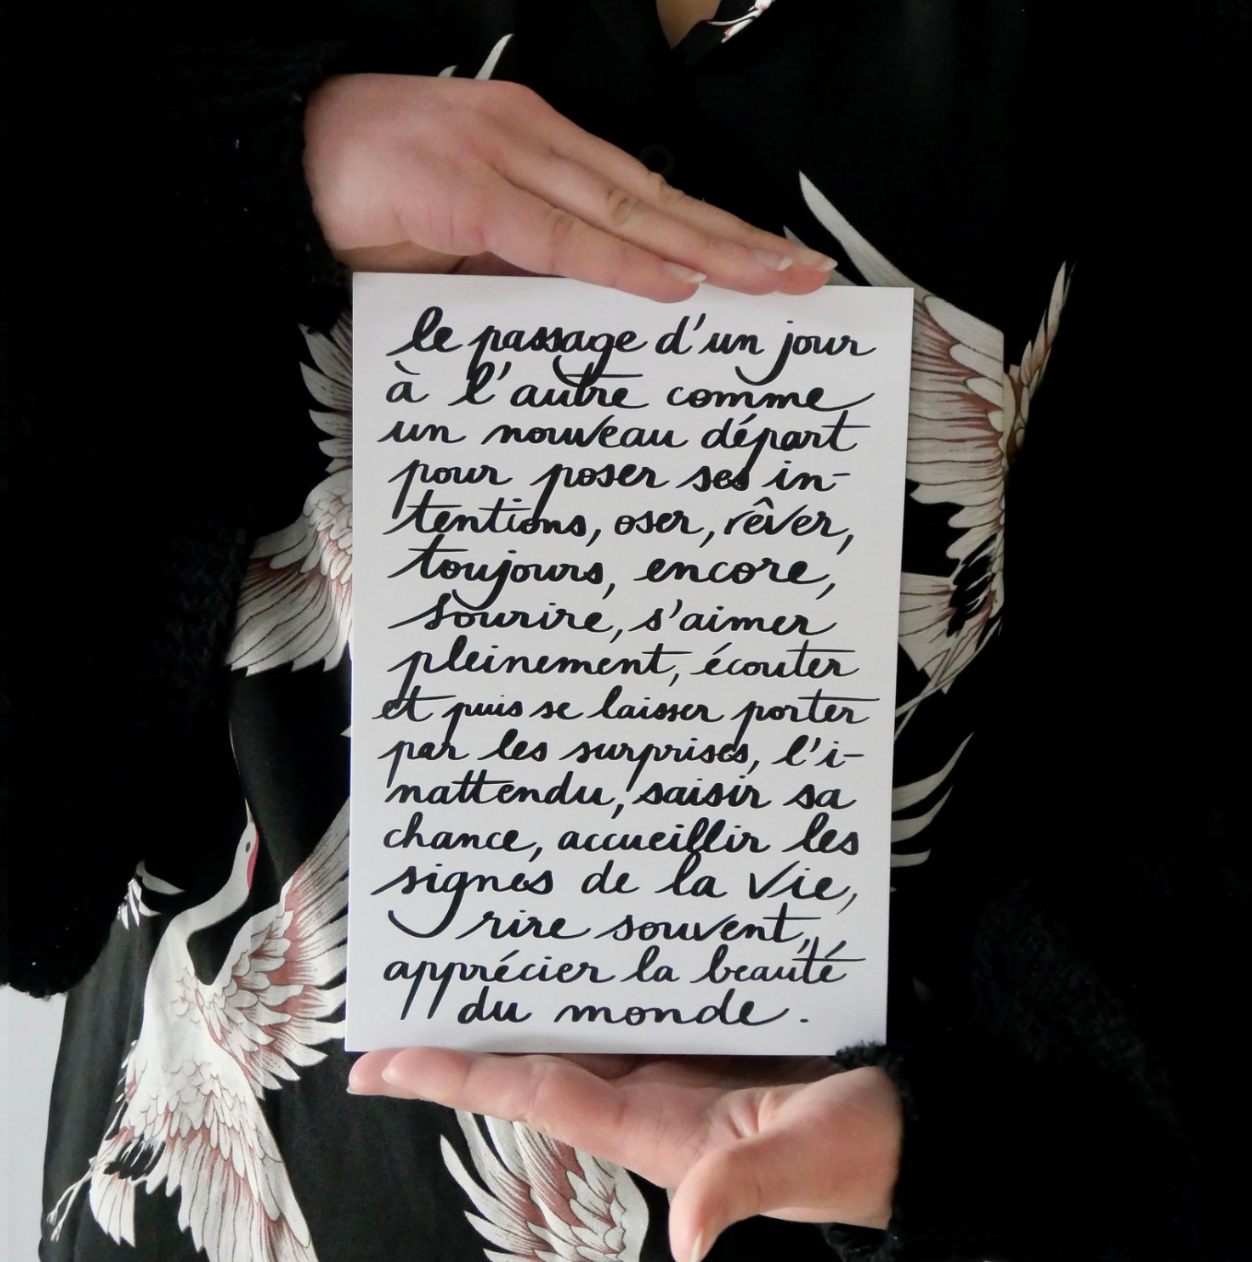 le passage d'un jour
à l'autre comme
un nouveau départ
pour poser ses in-
tentions, oser, rêver,
toujours, encore,
sourire, s'aimer
pleinement, écouter
et puis se laisser porter
par les surprises, l'i-
nattendu, saisir sa
chance, accueillir les
signes de la vie,
rire souvent,
apprécier la beauté
du monde.